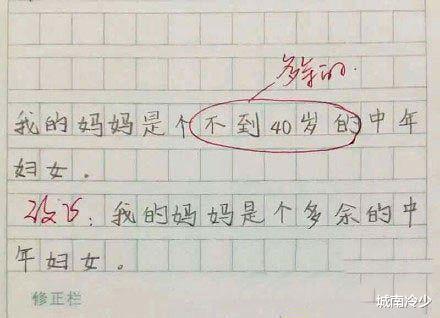 多余的.
我的妈妈是个不到40岁的中年
妇女。
改正：我的妈妈是个多余的中
年妇女。
修正栏
城南冷少